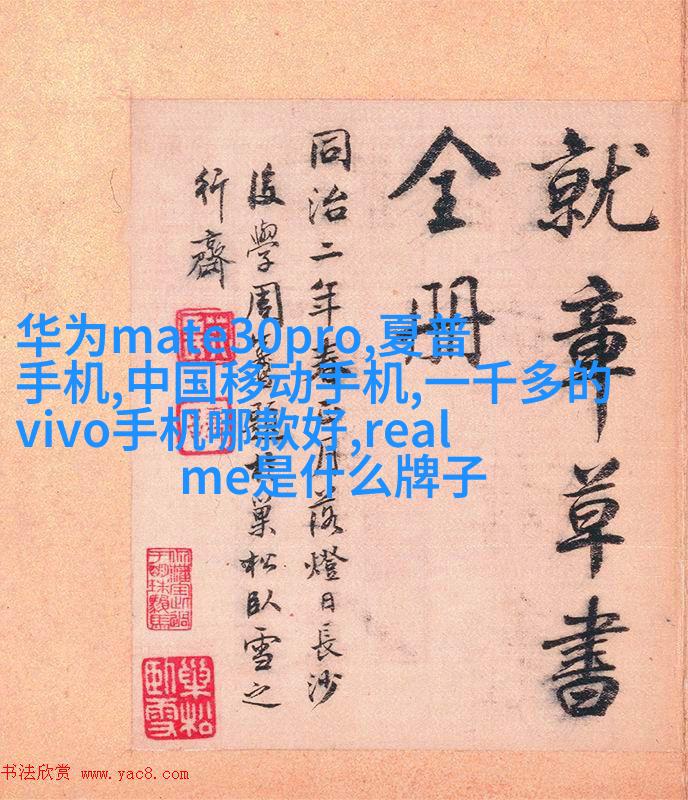 就章草書
全册
同治二年春正月落燈日長沙
後學周巢松臥雪之
行齋
华为mate30pro,夏普
手机,中国移动手机,一千多的
vivo手机哪款好,real
me是什么牌子
巢松
臥雪
书法欣赏 www.yac8.com